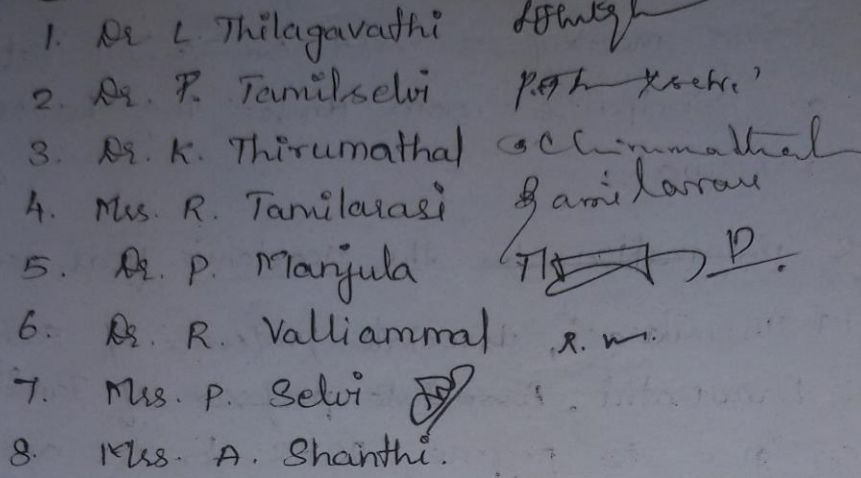 1. Dr L. Thilagavathi
2. Dr. P. Tamilselvi
3. Dr. K. Thirumathal
4. Mrs. R. Tamilarasi
5. Dr. P. Manjula
6. Dr. R. Valliammal R.
7. Mrs. P. Selvi
8. Mrs. A. Shanthi.